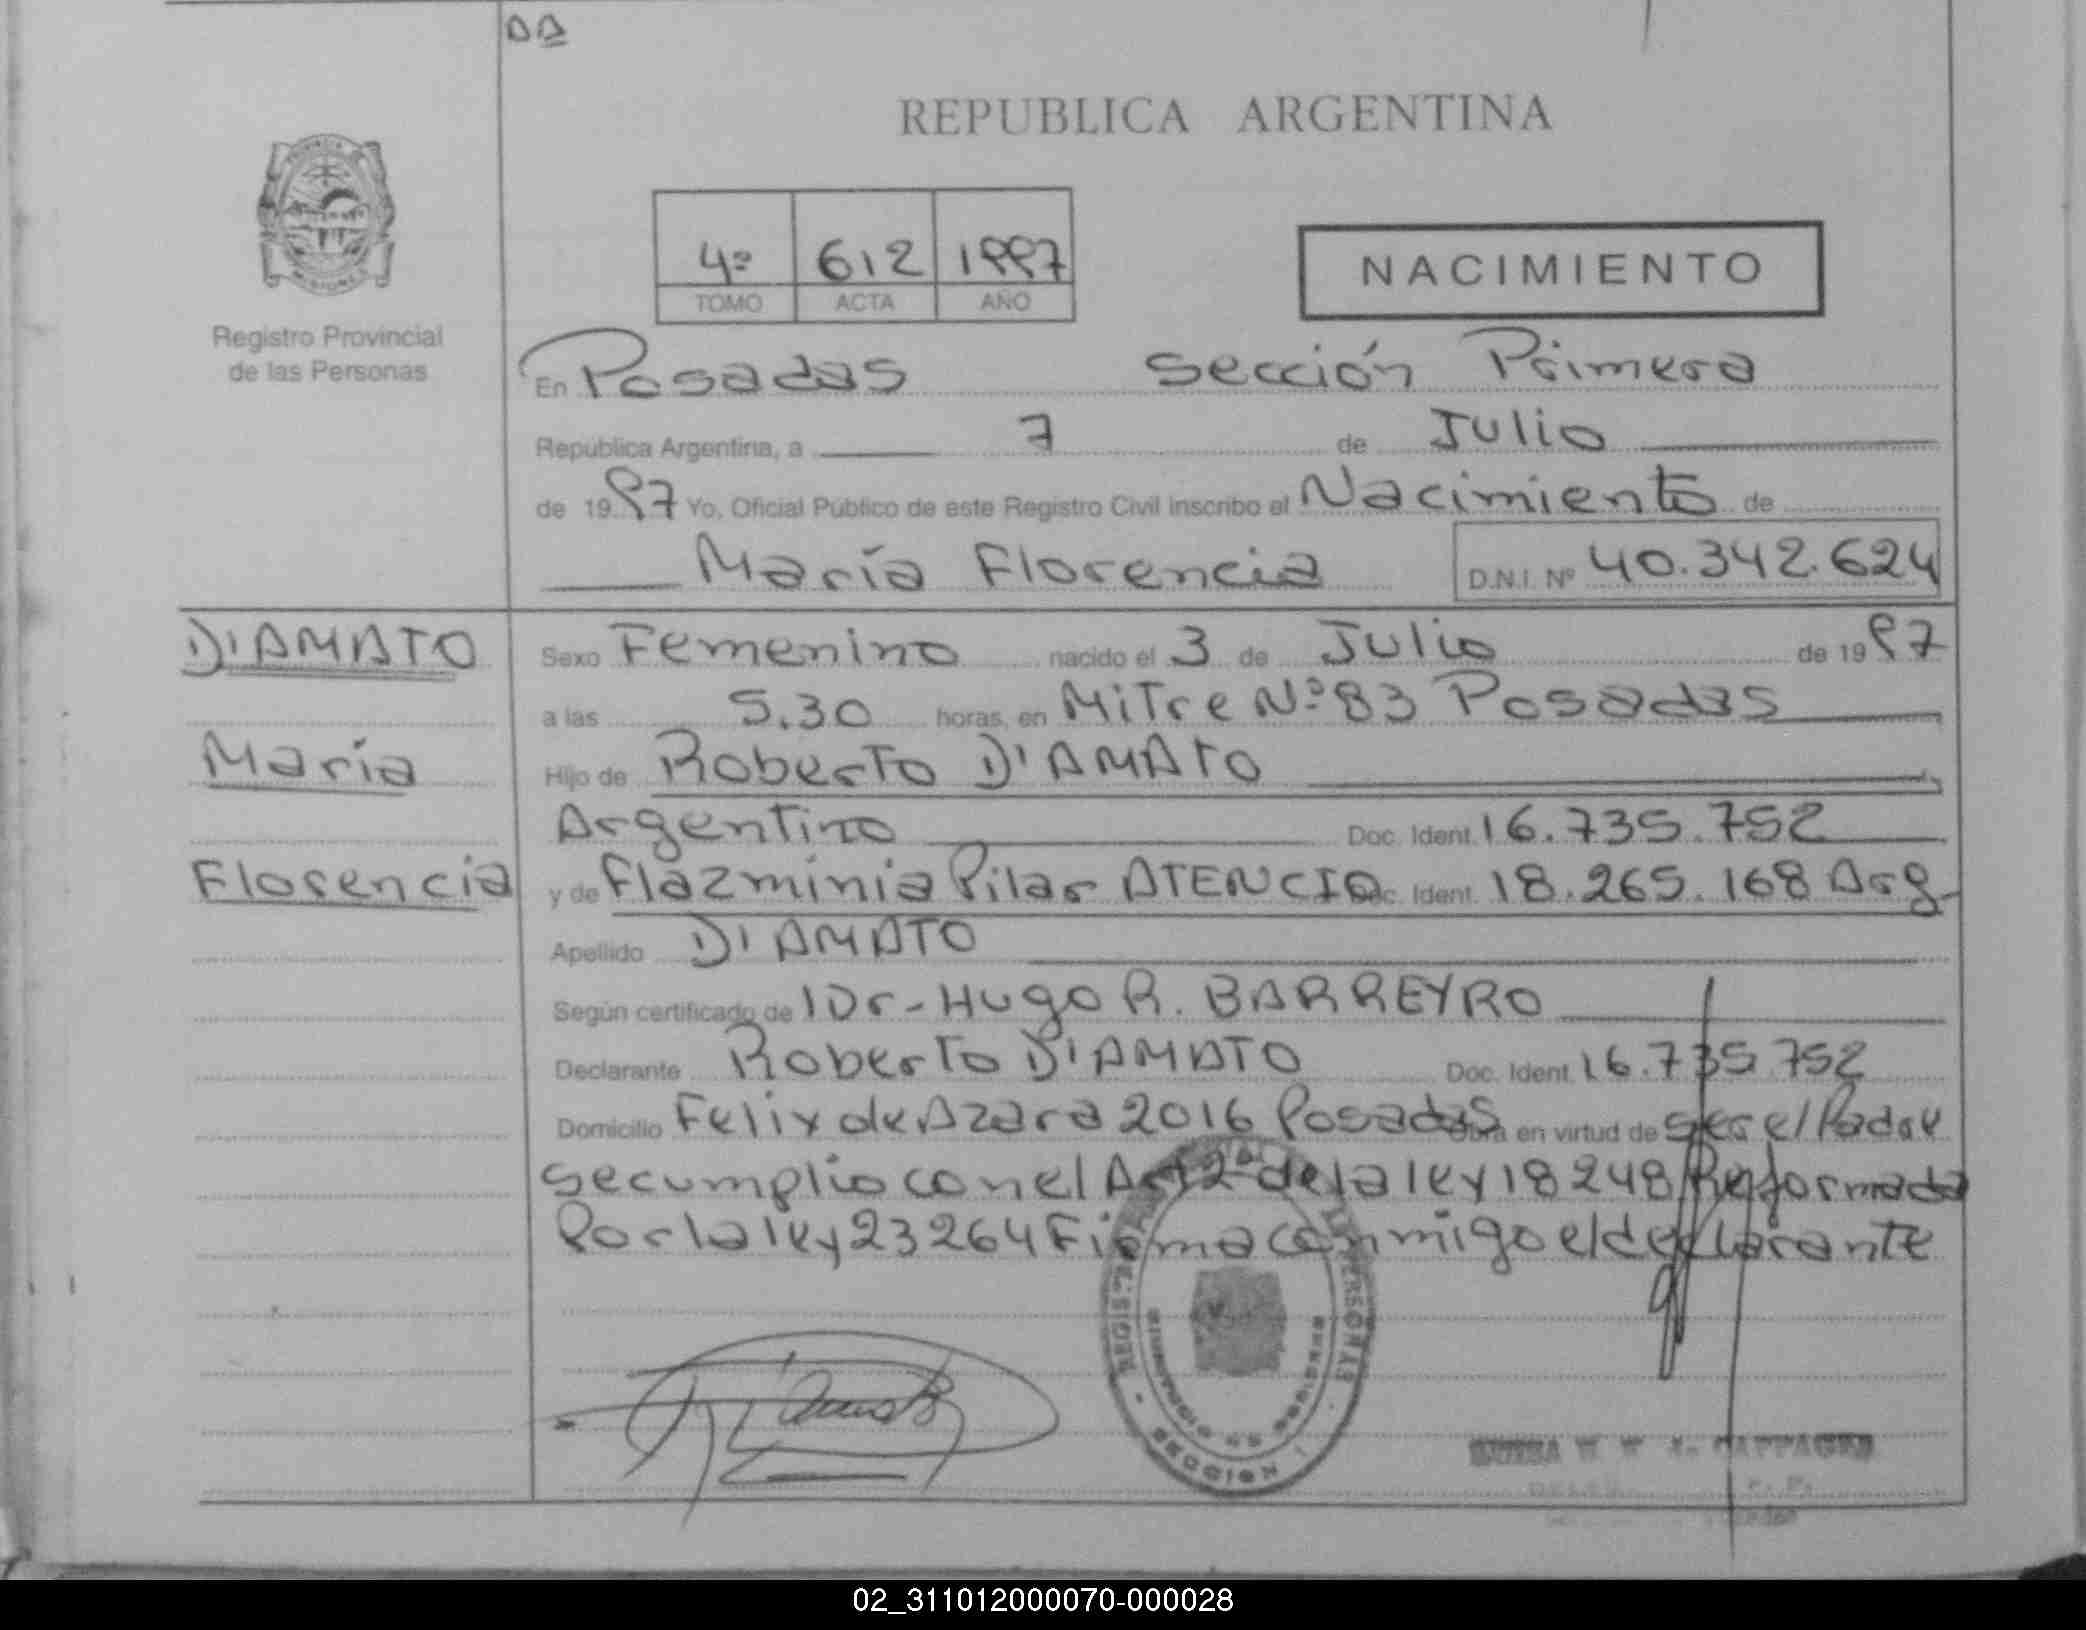 DD
REPUBLICA ARGENTINA
Registro Provincial
de las Personas
4º 612 1997
TOMO ACTA AÑO
NACIMIENTO
En Posadas Sección Primera
República Argentina, a 7 de Julio
de 1997 Yo, Oficial Público de este Registro Civil inscribo el Nacimiento de
María Florencia D.N.I. Nº 40.342.624
D'AMATO
María
Florencia
Sexo Femenino nacido el 3 de Julio de 1997
a las 5.30 horas, en Mitre Nº 83 Posadas
Hijo de Roberto D'AMATO
Argentino Doc. Ident. 16.735.752
y de Flazminia Pilar ATENCIO Doc. Ident. 18.265.168 Arg.
Apellido D'AMATO
Según certificado de Dr- Hugo R. BARREYRO
Declarante Roberto D'AMATO Doc. Ident. 16.735.752
Domicilio Felix de Azara 2016 Posadas Obra en virtud de ser el Padre
se cumplio con el Art 2º de la ley 18248 Reformada
Por la ley 23264 Firma conmigo el declarante
PERSONAS
SECCION
02_311012000070-000028